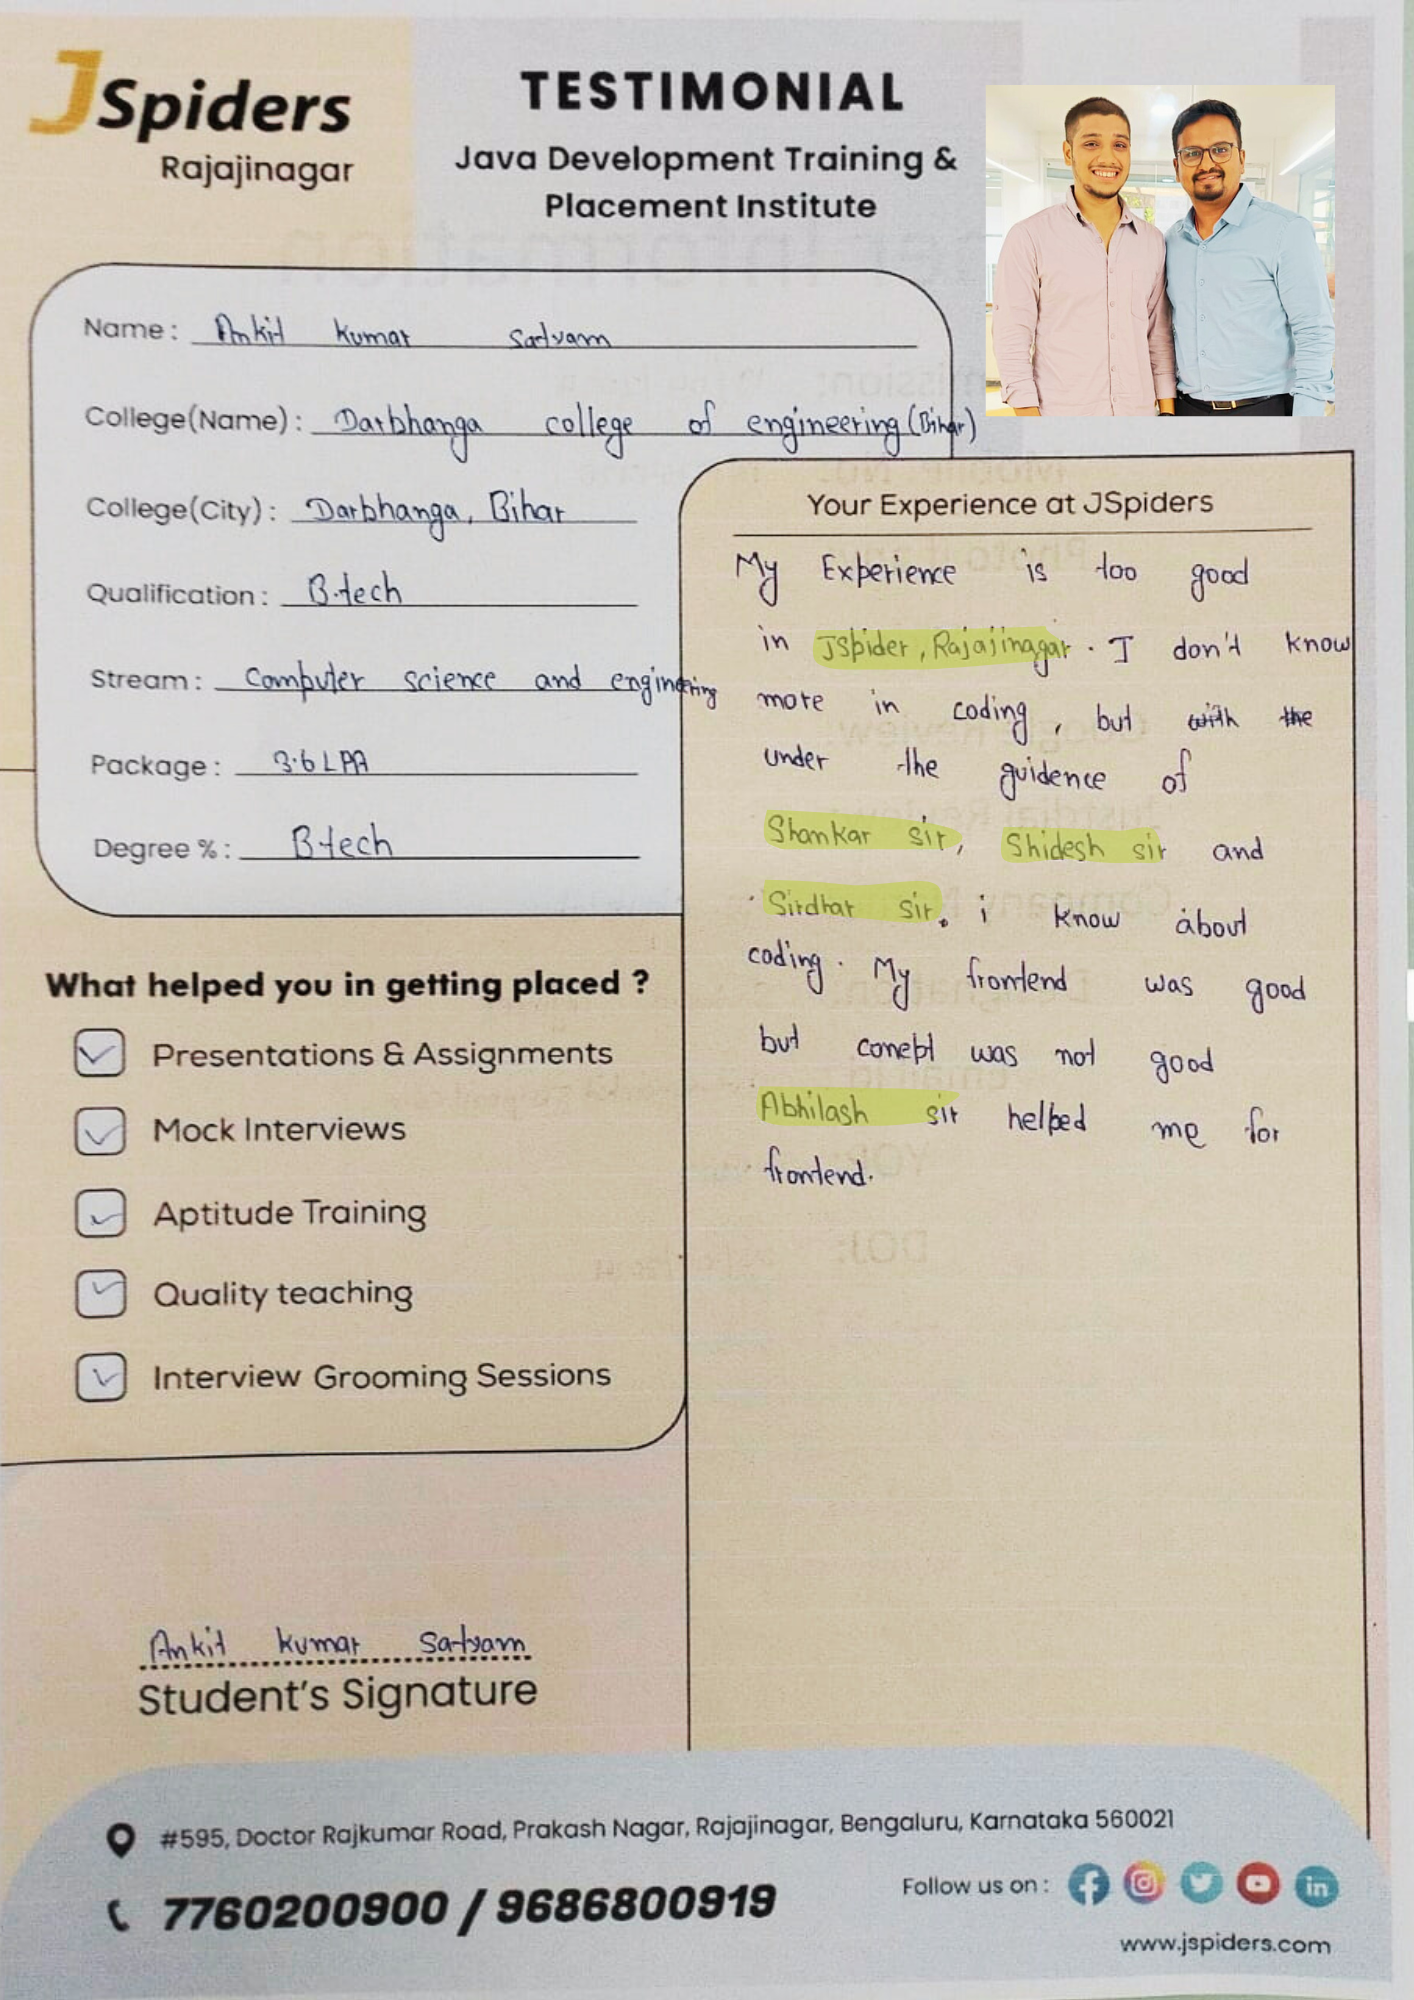 JSpiders
Rajajinagar
TESTIMONIAL
Java Development Training &
Placement Institute
Name : Ankit Kumar Satyam
College(Name) : Darbhanga college of engineering (Bihar)
College(City) : Darbhanga, Bihar
Qualification : B.tech
Stream : Computer science and engineering
Package : 3.6 LPA
Degree % : B.tech
What helped you in getting placed ?
Presentations & Assignments
Mock Interviews
Aptitude Training
Quality teaching
Interview Grooming Sessions
Ankit Kumar Satyam
Student's Signature
Your Experience at JSpiders
My Experience is too good
in JSpider, Rajajinagar. I don't know
more in coding, but with the
under the guidence of
Shankar sir, Shidesh sir and
Sirdhar sir, i know about
coding. My frontend was good
but conept was not good
Abhilash sir helped me for
frontend.
#595, Doctor Rajkumar Road, Prakash Nagar, Rajajinagar, Bengaluru, Karnataka 560021
7760200900 / 9686800919
Follow us on :
www.jspiders.com